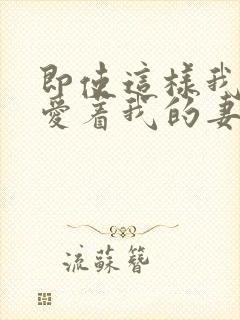 即使這樣我
愛著我的妻
流蘇簪